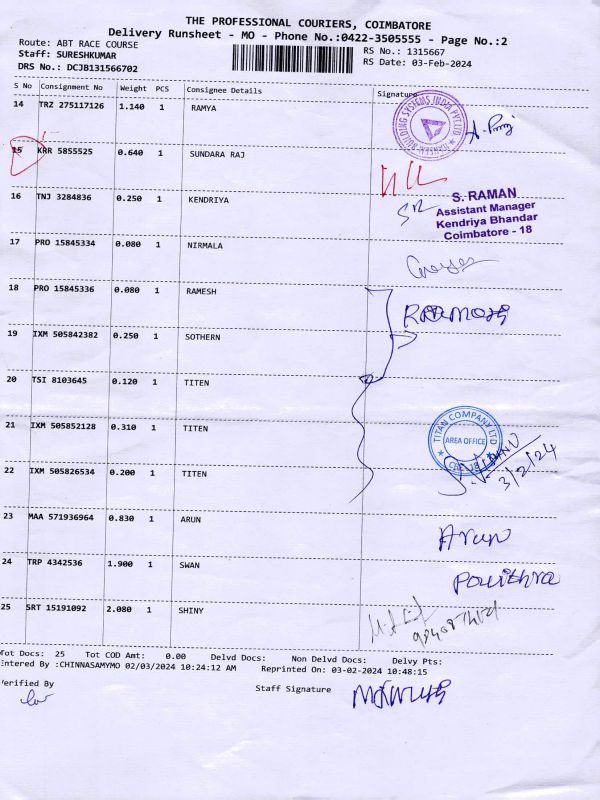 THE PROFESSIONAL COURIERS, COIMBATORE
Delivery Runsheet - MO - Phone No.:0422-3505555 - Page No.:2
Route: ABT RACE COURSE
RS No.: 1315667
Staff: SURESHKUMAR
RS Date: 03-Feb-2024
DRS No.: DCJB131566702
S No Consignment No Weight PCS Consignee Details Signature
14 TRZ 275117126 1.140 1 RAMYA
15 KRR 5855525 0.640 1 SUNDARA RAJ
16 TNJ 3284836 0.250 1 KENDRIYA
S. RAMAN
Assistant Manager
Kendriya Bhandar
Coimbatore - 18
17 PRO 15845334 0.080 1 NIRMALA
18 PRO 15845336 0.080 1 RAMESH
19 IXM 505842382 0.250 1 SOTHERN
20 TSI 8103645 0.120 1 TITEN
21 IXM 505852128 0.310 1 TITEN
TITAN COMPANY LTD
AREA OFFICE
22 IXM 505826534 0.200 1 TITEN
3/2/24
23 MAA 571936964 0.830 1 ARUN
Arun
24 TRP 4342536 1.900 1 SWAN
Pavithra
25 SRT 15191092 2.080 1 SHINY
Tot Docs: 25 Tot COD Amt: 0.00 Delvd Docs: Non Delvd Docs: Delvy Pts:
Entered By :CHINNASAMYMO 02/03/2024 10:24:12 AM Reprinted On: 03-02-2024 10:48:15
Verified By
Staff Signature